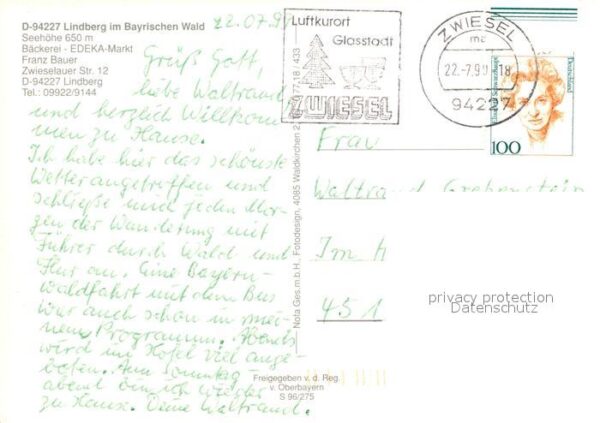 D-94227 Lindberg im Bayrischen Wald
Seehöhe 650 m
Bäckerei - EDEKA-Markt
Franz Bauer
Zwieselauer Str. 12
D-94227 Lindberg
Tel.: 09922/9144
22.07.99
Grüß Gott,
liebe Waltraud
und herzlich Willkom
men zu Hause.
Ich habe hier das schönste
Wetter angetroffen und
schließe mich jeden Mor-
gen der Wanderung mit
Führer durch Wald und
Flur an. Eine Bayern-
waldfahrt mit dem Bus
war auch schon in mei-
nem Programm. Abends
wird im Hotel viel ange-
boten. Am Sonntag-
abend bin ich wieder
zu Hause. Deine Waltraud.
Nota Ges.m.b.H., Fotodesign, 4085 Waldkirchen
Freigegeben v. d. Reg.
v. Oberbayern
S 96/275
Luftkurort
Glasstadt
ZWIESEL
ZWIESEL
mc
22.-7.99 18
94227
Deutschland
100
Frau
Waltraud
Im H
451
privacy protection
Datenschutz